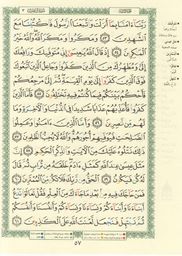 رَبَّنَا آمَنَّا بِمَا أَنزَلْتَ وَاتَّبَعْنَا الرَّسُولَ فَاكْتُبْنَا مَعَ
الشَّاهِدِينَ ٥٣ وَمَكَرُوا وَمَكَرَ اللَّهُ وَاللَّهُ خَيْرُ
الْمَاكِرِينَ ٥٤ إِذْ قَالَ اللَّهُ يَا عِيسَى إِنِّي مُتَوَفِّيكَ وَرَافِعُكَ
إِلَيَّ وَمُطَهِّرُكَ مِنَ الَّذِينَ كَفَرُوا وَجَاعِلُ الَّذِينَ اتَّبَعُوكَ
فَوْقَ الَّذِينَ كَفَرُوا إِلَى يَوْمِ الْقِيَامَةِ ثُمَّ إِلَيَّ مَرْجِعُكُمْ
فَأَحْكُمُ بَيْنَكُمْ فِيمَا كُنتُمْ فِيهِ تَخْتَلِفُونَ ٥٥ فَأَمَّا الَّذِينَ
كَفَرُوا فَأُعَذِّبُهُمْ عَذَابًا شَدِيدًا فِي الدُّنْيَا وَالْآخِرَةِ وَمَا
لَهُم مِّن نَّاصِرِينَ ٥٦ وَأَمَّا الَّذِينَ آمَنُوا وَعَمِلُوا
الصَّالِحَاتِ فَيُوَفِّيهِمْ أُجُورَهُمْ وَاللَّهُ لَا يُحِبُّ الظَّالِمِينَ
٥٧ ذَٰلِكَ نَتْلُوهُ عَلَيْكَ مِنَ الْآيَاتِ وَالذِّكْرِ الْحَكِيمِ ٥٨
إِنَّ مَثَلَ عِيسَى عِندَ اللَّهِ كَمَثَلِ آدَمَ خَلَقَهُ مِن تُرَابٍ ثُمَّ قَالَ
لَهُ كُن فَيَكُونُ ٥٩ الْحَقُّ مِن رَّبِّكَ فَلَا تَكُن مِّنَ الْمُمْتَرِينَ ٦٠
فَمَنْ حَاجَّكَ فِيهِ مِن بَعْدِ مَا جَاءَكَ مِنَ الْعِلْمِ فَقُلْ تَعَالَوْا
نَدْعُ أَبْنَاءَنَا وَأَبْنَاءَكُمْ وَنِسَاءَنَا وَنِسَاءَكُمْ وَأَنفُسَنَا وَأَنفُسَكُمْ
ثُمَّ نَبْتَهِلْ فَنَجْعَل لَّعْنَتَ اللَّهِ عَلَى الْكَاذِبِينَ ٦١
٥٧